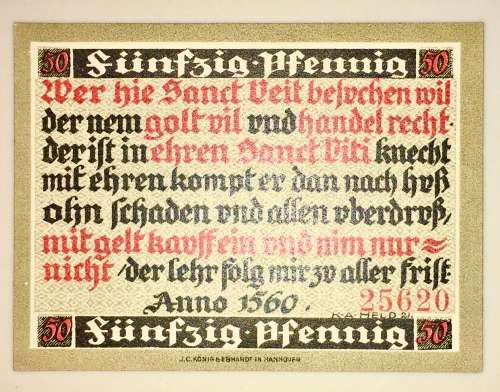 50 Fünfzig · Pfennig 50
Wer hie Sanct Veit besvchen wil
der nem golt vil vnd handel recht ·
der ist in ehren Sanct Viti knecht
mit ehren kompt er dan nach hvß
ohn schaden vnd allen vberdrvß,
mit gelt kauff ein vnd nim nur =
nicht / der lehr folg mir zv aller frist
Anno 1560 . 25620
R·A·HELD 21
50 Fünfzig · Pfennig 50
J.C.KÖNIG & EBHARDT IN HANNOVER